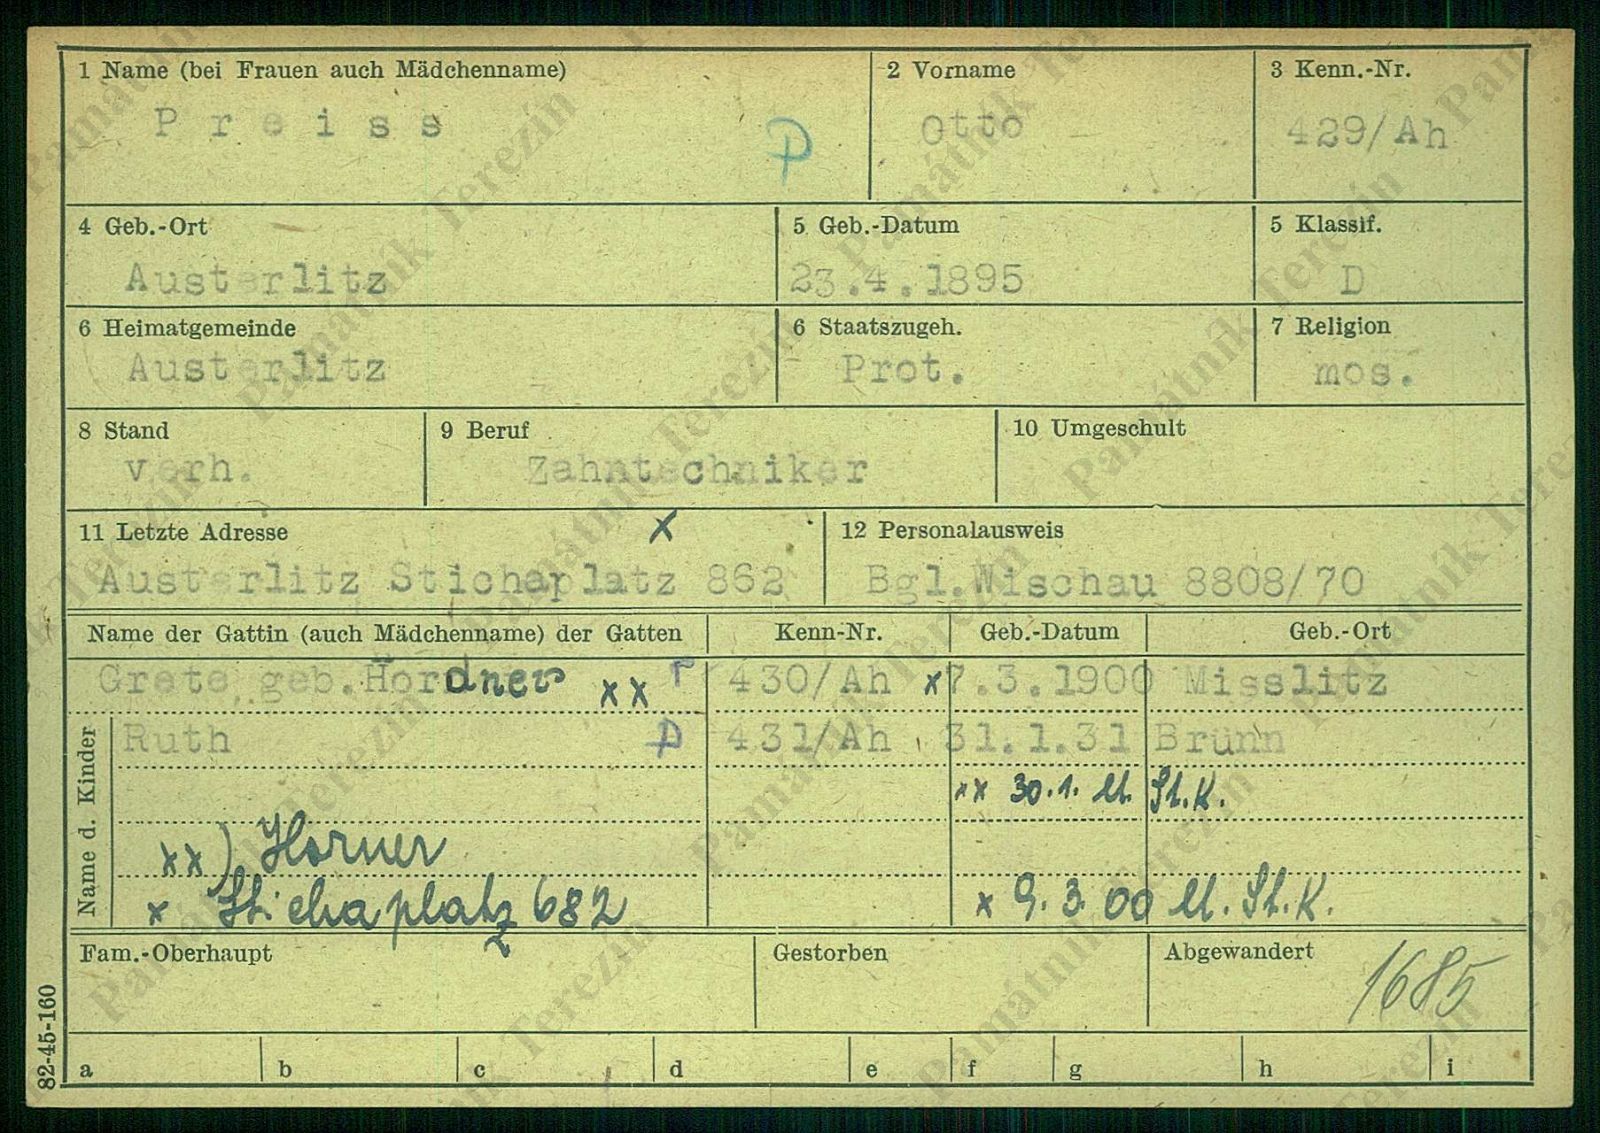 1 Name (bei Frauen auch Mädchenname)
2 Vorname
3 Kenn.-Nr.
Preiss
P
Otto
429/Ah
4 Geb.-Ort
5 Geb.-Datum
5 Klassif.
Austerlitz
23.4.1895
D
6 Heimatgemeinde
6 Staatszugeh.
7 Religion
Austerlitz
Prot.
mos.
8 Stand
9 Beruf
10 Umgeschult
verh.
Zahntechniker
11 Letzte Adresse
x
12 Personalausweis
Austerlitz Stichaplatz 862
Bgl.Wischau 8808/70
Name der Gattin (auch Mädchenname) der Gatten
Kenn-Nr.
Geb.-Datum
Geb.-Ort
Grete geb. Hördner xx r
430/Ah
x 7.3.1900
Misslitz
Name d. Kinder
Ruth
P
431/Ah
31.1.31
Brünn
xx 30.1. lt. St.K.
xx) Horner
x Stichaplatz 682
x 9.3.00 lt. St.K.
Fam.-Oberhaupt
Gestorben
Abgewandert
1685
82-45-160
a b c d e f g h i
Památník Terezín